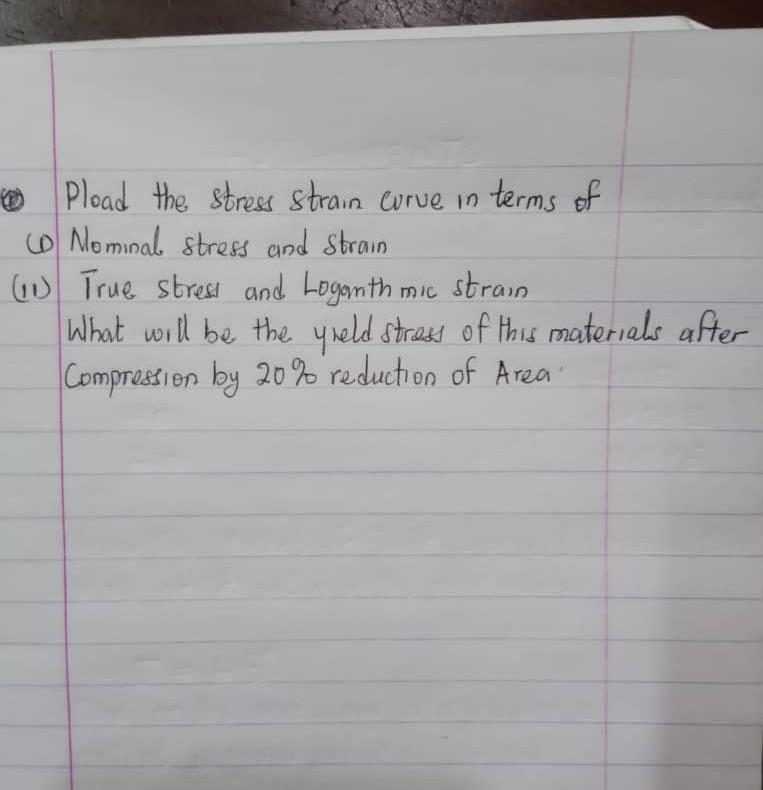 Pload the stress strain curve in terms of
(i) Nominal stress and strain
(ii) True stress and Loganthmic strain
What will be the yield stress of this materials after
Compression by 20% reduction of Area.